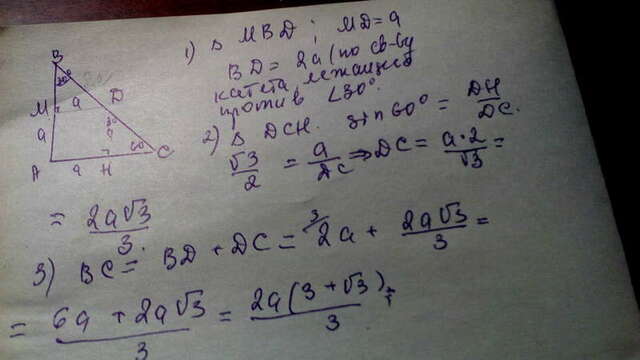 B
30°
M a D
a 30° a
60°
A a H C
1) Δ MBD ; MD = a
BD = 2a (по св-ву
катета лежащего
против ∠30°.
2) Δ DCH. sin 60° = DH/DC.
√3/2 = a/DC ⇒ DC = a·2/√3 =
= 2a√3/3.
3) BC = BD + DC = 3/2a + 2a√3/3 =
= 6a + 2a√3/3 = 2a(3+√3)/3